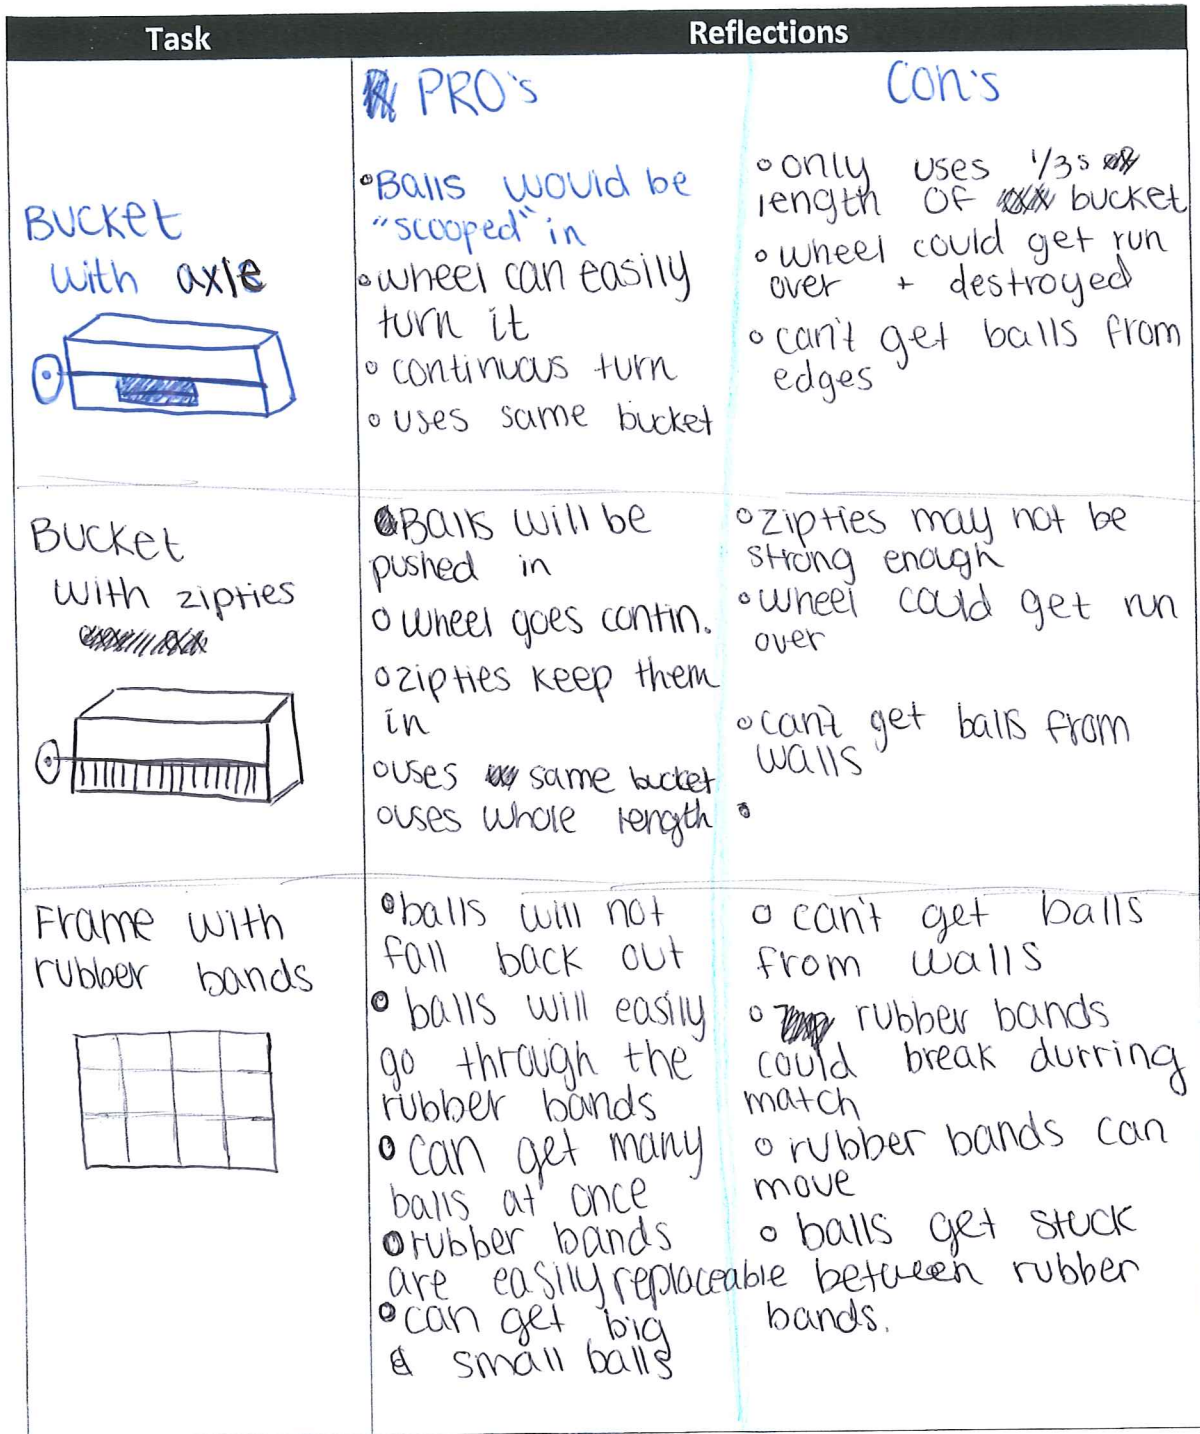 Task
Reflections
PRO's
Con's
Bucket
with axle
•Balls would be
"scooped" in
•wheel can easily
turn it
•continuous turn
•uses same bucket
•only uses 1/3s
length of bucket
•wheel could get run
over + destroyed
•can't get balls from
edges
Bucket
with zipties
•Balls will be
pushed in
•wheel goes contin.
•zipties keep them
in
•uses same bucket
•uses whole length
•zipties may not be
strong enough
•wheel could get run
over
•can't get balls from
walls
•
Frame with
rubber bands
•balls will not
fall back out
•balls will easily
go through the
rubber bands
•can get many
balls at once
•rubber bands
are easily replaceable
•can get big
& small balls
•can't get balls
from walls
•rubber bands
could break durring
match
•rubber bands can
move
•balls get stuck
between rubber
bands.